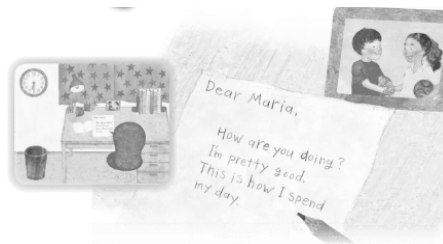 Dear Maria,
How are you doing?
I'm pretty good.
This is how I spend
my day.